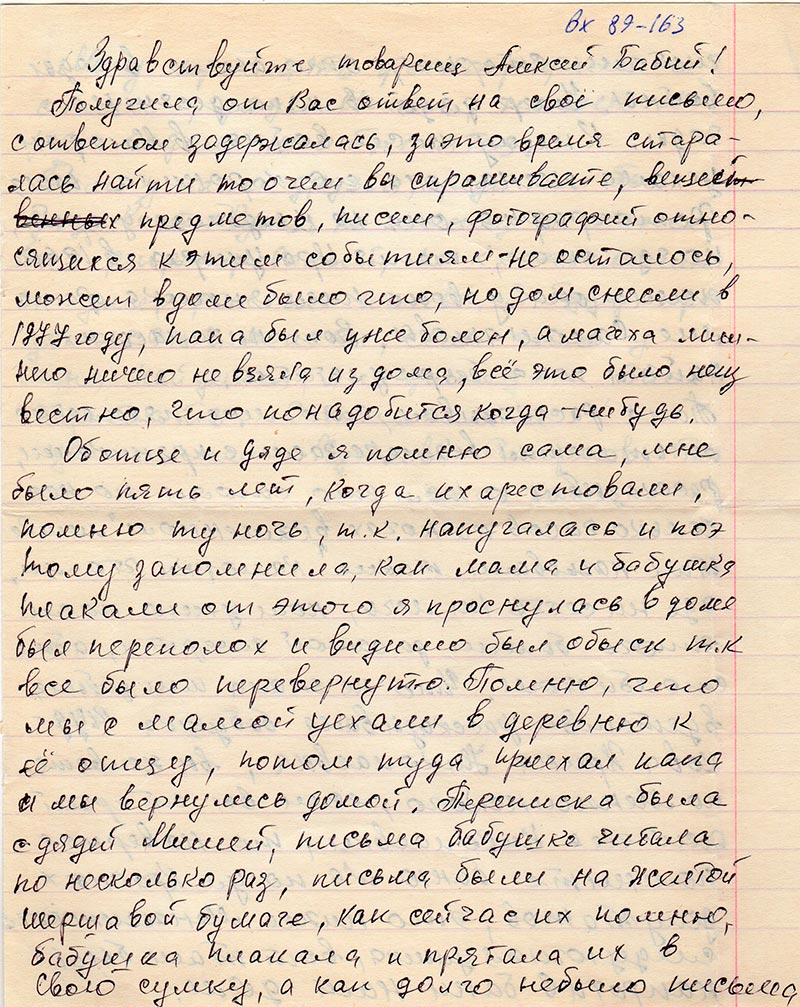 вх 89-163
Здравствуйте товарищ Алексей Бабий!
Получила от Вас ответ на своё письмо,
с ответом задержалась, за это время стара-
лась найти то о чем вы спрашиваете, вещест-
венных предметов, писем, фотографий отно-
сящихся к этим событиям-не осталось,
может в доме было что, но дом снесли в
1977 году, папа был уже болен, а мачеха лиш-
него ничего не взяла из дома, всё это было неиз
вестно, что понадобится когда-нибудь.
Об отце и дяде я помню сама, мне
было пять лет, когда их арестовали,
помню ту ночь, т.к. напугалась и поэ
тому запомнила, как мама и бабушка
плакали от этого я проснулась в доме
был переполох и видимо был обыск т.к
все было перевернуто. Помню, что
мы с мамой уехали в деревню к
её отцу, потом туда приехал папа
и мы вернулись домой. Переписка была
с дядей Мишей, письма бабушке читала
по несколько раз, письма были на желтой
шершавой бумаге, как сейчас их помню,
бабушка плакала и прятала их в
свою сумку, а как долго небыло письма